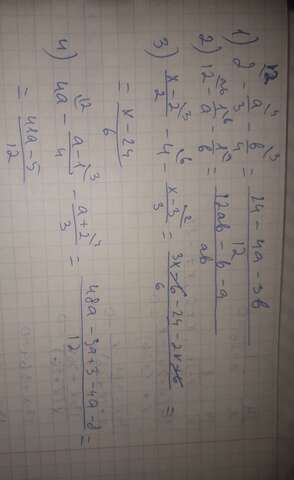 1) 2^12 - a/3^4 - b/4^3 = (24 - 4a - 3b)/12
2) 12^ab - 1/a^b - 1/b^a = (12ab - b - a)/ab
3) (x-2)/2^3 - 4^6 - (x-3)/3^2 = (3x-6-24-2x+6)/6 =
= (x-24)/6
4) 4a^12 - (a-1)/4^3 - (a+2)/3^4 = (48a-3a+3-4a-8)/12 =
= (41a-5)/12